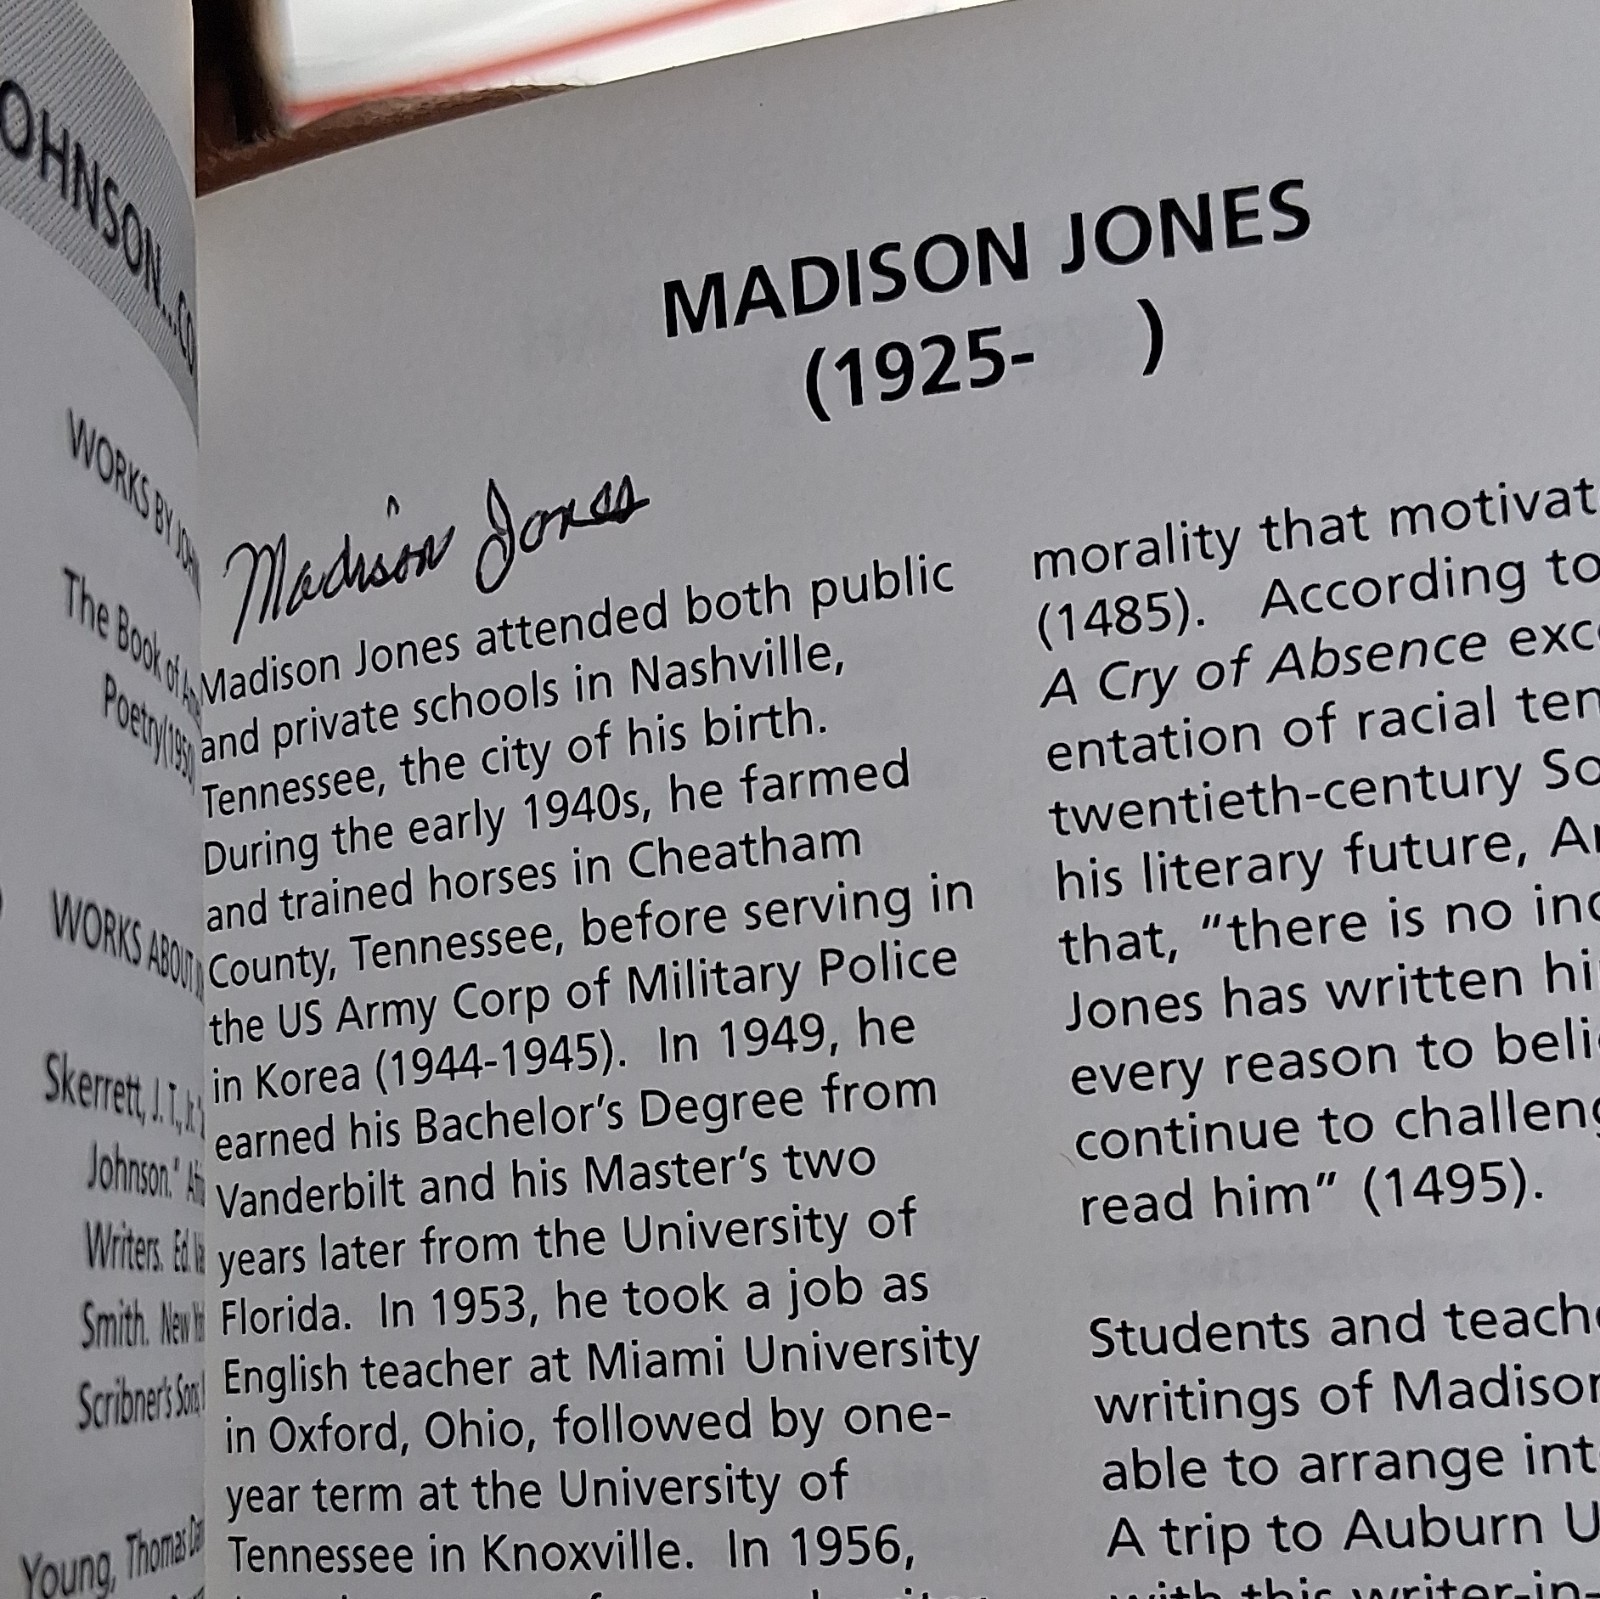 OHNSON...CO
WORKS BY JOHN
The Book of Ame
Poetry (1950
WORKS ABOUT
Skerrett, J. T., Jr.
Johnson."
Writers. Ed.
Smith. New
Scribner's Sons
Young, Thomas
MADISON JONES
(1925- )
Madison Jones
Madison Jones attended both public
and private schools in Nashville,
Tennessee, the city of his birth.
During the early 1940s, he farmed
and trained horses in Cheatham
County, Tennessee, before serving in
the US Army Corp of Military Police
in Korea (1944-1945). In 1949, he
earned his Bachelor's Degree from
Vanderbilt and his Master's two
years later from the University of
Florida. In 1953, he took a job as
English teacher at Miami University
in Oxford, Ohio, followed by one-
year term at the University of
Tennessee in Knoxville. In 1956,
morality that motivat
(1485). According to
A Cry of Absence exc
entation of racial ten
twentieth-century So
his literary future, Ar
that, "there is no inc
Jones has written hi
every reason to beli
continue to challeng
read him" (1495).
Students and teache
writings of Madison
able to arrange int
A trip to Auburn U
with this writer-in-